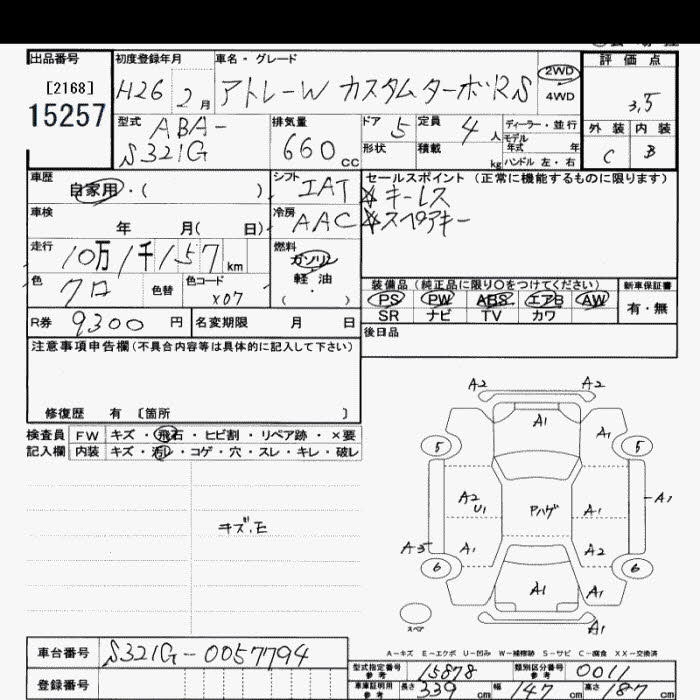 出品番号 初度登録年月 車名・グレード 評価点
[2168] H26 2月 アトレーW カスタムターボRS 2WD 4WD 3,5
15257 型式 ABA-S321G 排気量 660cc ドア 5 定員 4人 ディーラー・並行 モデル年式 年 外装 内装
形状 積載 kg ハンドル 左・右 C B
車歴 自家用・( ) シフト IAT セールスポイント(正常に機能するものに限ります)
☆キーレス
車検 年 月( 日) 冷房 AAC ☆スペアキー
走行 10万1千157km 燃料 ガソリン
軽油
( )
色 クロ 色替 色コード X07 装備品(純正品に限り○をつけてください) 新車保証書
PS PW ABS エアB AW 有・無
SR ナビ TV カワ
R券 9300円 名変期限 月 日 後日品
注意事項申告欄(不具合内容等は具体的に記入して下さい)
修復歴 有 〔箇所 〕
検査員 FW キズ・飛石・ヒビ割・リペア跡・×要
記入欄 内装 キズ・汚レ・コゲ・穴・スレ・キレ・破レ
キズ.E
A2 A2
A1
A1
5 5
A2 U1 Pハゲ A1 A1
A3 A1 A2
6 6
A1 A1
スペア
A1
A-キズ E-エクボ U-凹み W-補修跡 S-サビ C-腐食 XX-交換済
車台番号 S321G-0057794
型式指定番号 参考 15878 類別区分番号 参考 0011
登録番号
車庫証明用 参考 長さ 339cm 幅 147cm 高さ 187cm